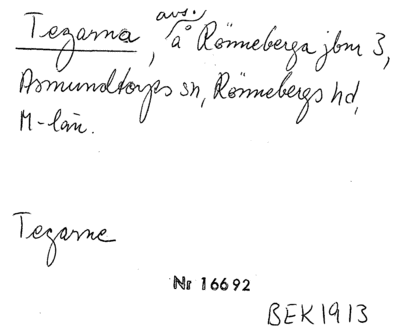 avs.
Tegarna, å Rönneberga jbnr 3,
Asmundtorps sn, Rönnebergs hd,
M-län.
Tegarne
Nr 16692
BEK1913